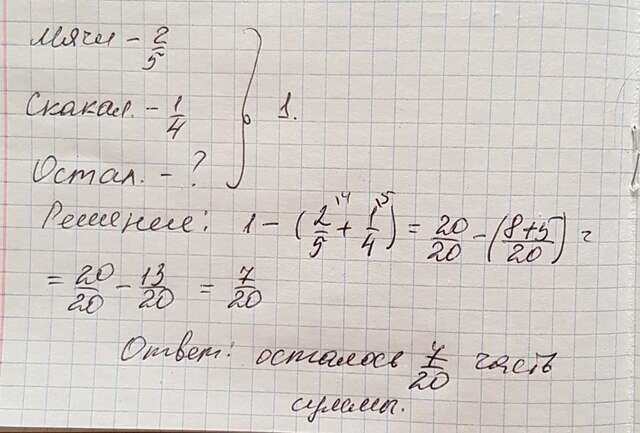 Мячи - 2/5
Скакал. - 1/4 } 1.
Остал. - ?
Решение: 1 - (2/5 + 1/4) = 20/20 - (8+5/20) =
= 20/20 - 13/20 = 7/20
Ответ: осталось 7/20 часть
суммы.